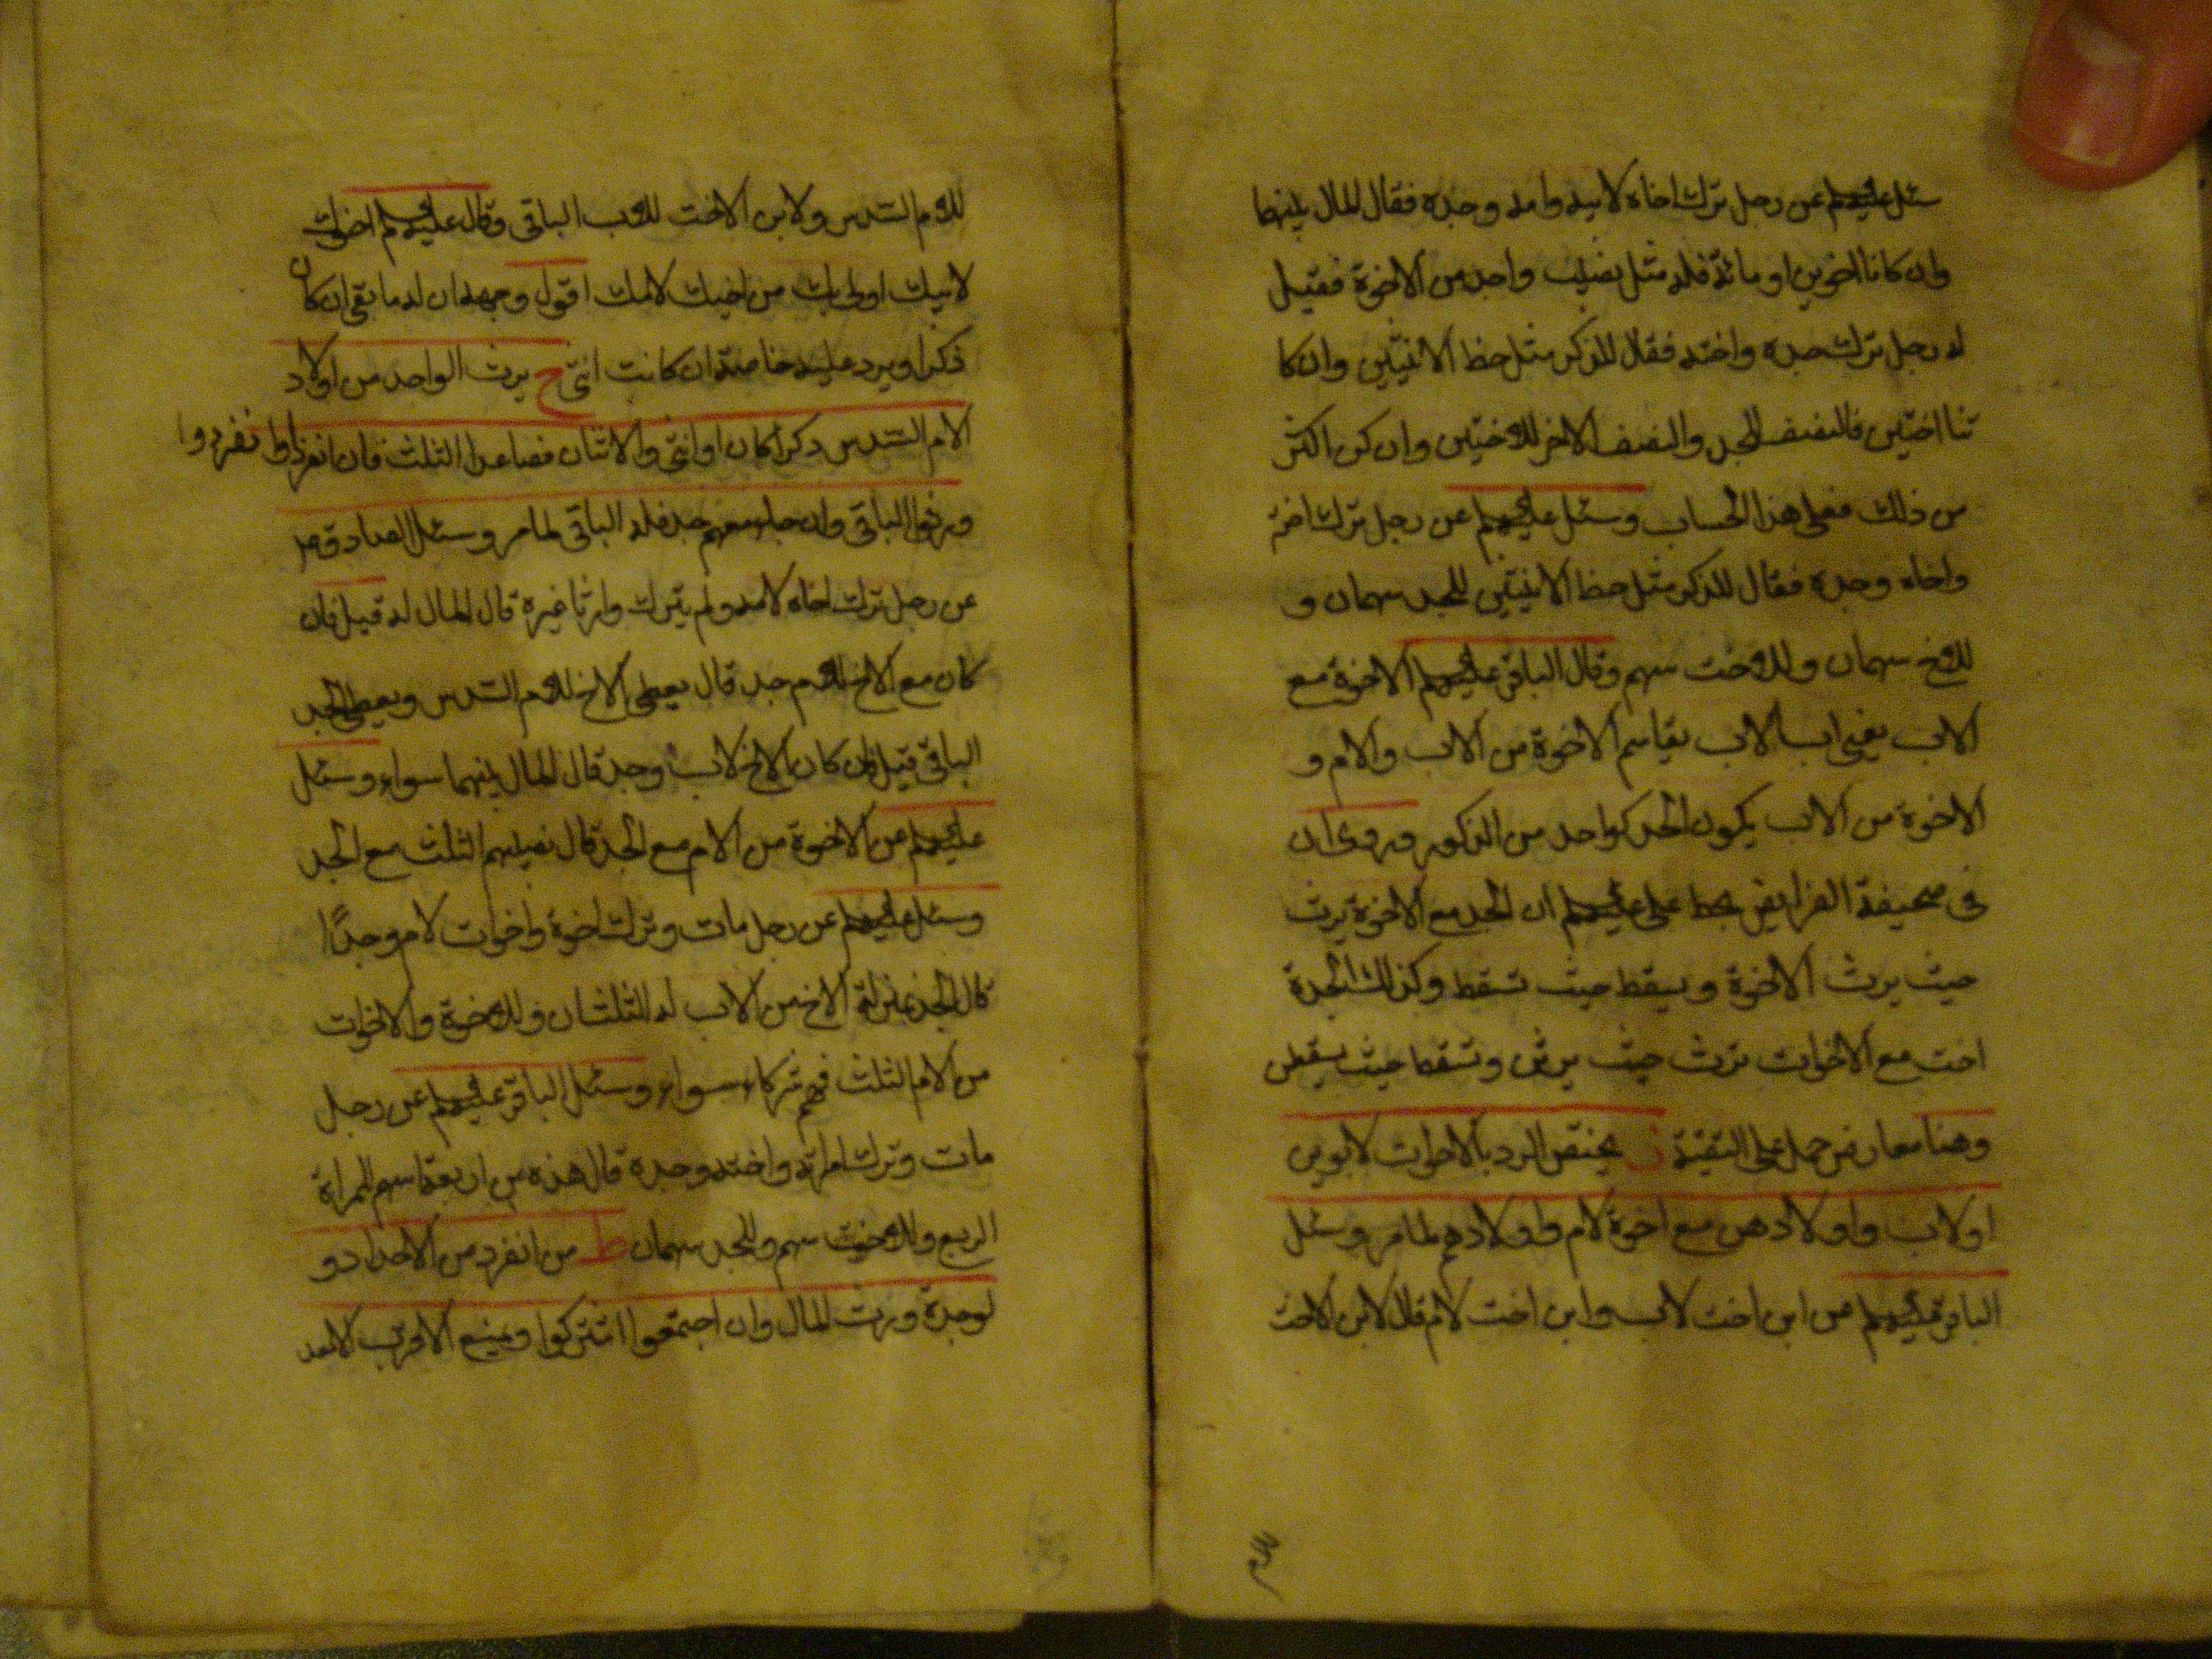 سئل عليهم عن رجل ترك اخاه لابيه وامه وجده فقال المال بينهما
وان كانا اخوين او مائة فله مثل نصيب واحد من الاخوة فقيل
له رجل ترك جده واخته فقال للذكر مثل حظ الانثيين وان كا
نتا اختين فالنصف للجد والنصف الاخر للاختين وان كن اكثر
من ذلك فعلى هذا الحساب وسئل عليهم عن رجل ترك اخته
واخاه وجده فقال للذكر مثل حظ الانثيين للجد سهمان و
للاخ سهمان وللاخت سهم وقال الباقر عليهم الاخوة مع
الاب يعنى اب الاب يقاسم الاخوة من الاب والام و
الاخوة من الاب يكون الجد كواحد من الذكور وروى ان
فى صحيفة الفرايض بخط على عليهم ان الجد مع الاخوة يرث
حيث يرث الاخوة ويسقط حيث تسقط وكذلك الجدة
اخت مع الاخوات ترث حيث يرثن وتسقط حيث يسقطن
وهنا معارض حمل على التقية ز يختص الرد بالاخوات لابوين
او لاب واولادهن مع اخوة لام واولادهم لما مر وسئل
الباقر عليهم عن ابن اخت لاب وابن اخت لام قال لابن الاخت
للام السدس ولابن الاخت للاب الباقى وقال عليهم اخوك
لابيك اولى بك من اخيك لامك اقول وجهه ان له ما بقى ان كان
ذكرا ويرد عليه خاصة ان كانت انثى ح يرث الواحد من اولاد
الام السدس ذكرا كان او انثى والاثنان فصاعدا الثلث فان انفرد او انفردوا
ورثوا الباقى وان جامعهم جد فله الباقى لما مر وسئل الصادق
عن رجل ترك اخاه لامه ولم يترك وارثا غيره قال المال له قيل فان
كان مع الاخ للام جد قال يعطى الاخ للام السدس ويعطى الجد
الباقى قيل فان كان الاخ لاب وجد قال المال بينهما سواء وسئل
عليهم عن الاخوة من الام مع الجد قال نصيبهم الثلث مع الجد
وسئل عليهم عن رجل مات وترك اخوة واخوات لام وجدًا
قال الجد بمنزلة الاخ من الاب له الثلثان وللاخوة والاخوات
من الام الثلث فهم شركاء سواء وسئل الباقر عليهم عن رجل
مات وترك امراته واخته وجده قال هذه من اربعة اسهم للمراة
الربع وللاخت سهم وللجد سهمان ط من انفرد من الاجداد و
لو جدة ورث المال وان اجتمعوا اشتركوا ويمنع الاقرب الابعد